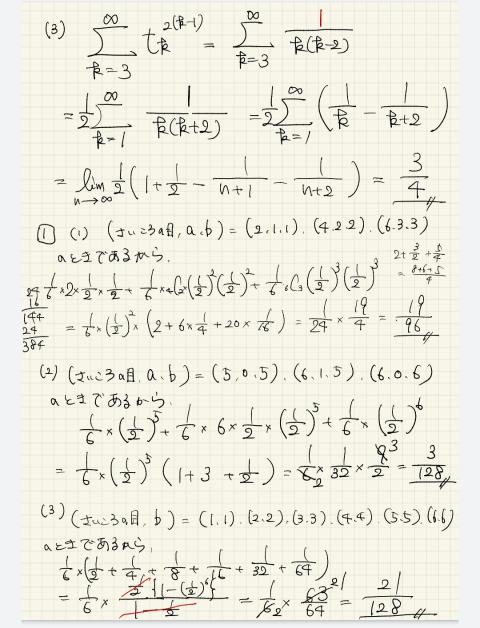 (3) ∞∑k=3 t_k^{2(k-1)} = ∞∑k=3 1/k(k-2)
= 1/2 ∞∑k=1 1/k(k+2) = 1/2 ∞∑k=1 (1/k - 1/k+2)
= lim n→∞ 1/2 (1 + 1/2 - 1/n+1 - 1/n+2) = 3/4
1 (1) (さいころの目, a, b) = (2,1,1), (4,2,2), (6,3,3)
のときであるから,
2 + 3/2 + 5/4
= 8+6+5/4
1/6 × 2 × 1/2 × 1/2 + 1/6 × 4C2 (1/2)^2 (1/2)^2 + 1/6 6C3 (1/2)^3 (1/2)^3
24
16
144
24
384
= 1/6 × (1/2)^2 × (2 + 6 × 1/4 + 20 × 1/16) = 1/24 × 19/4 = 19/96
(2) (さいころの目, a, b) = (5,0,5), (6,1,5), (6,0,6)
のときであるから,
1/6 × (1/2)^5 + 1/6 × 6 × 1/2 × (1/2)^5 + 1/6 × (1/2)^6
= 1/6 × (1/2)^5 (1 + 3 + 1/2) = 1/6 2 × 1/32 × 9/2 3 = 3/128
(3) (さいころの目, b) = (1,1), (2,2), (3,3), (4,4), (5,5), (6,6)
のときであるから,
1/6 × (1/2 + 1/4 + 1/8 + 1/16 + 1/32 + 1/64)
= 1/6 × 1/2 {1 - (1/2)^6} / 1 - 1/2 = 1/6 2 × 63/64 21 = 21/128